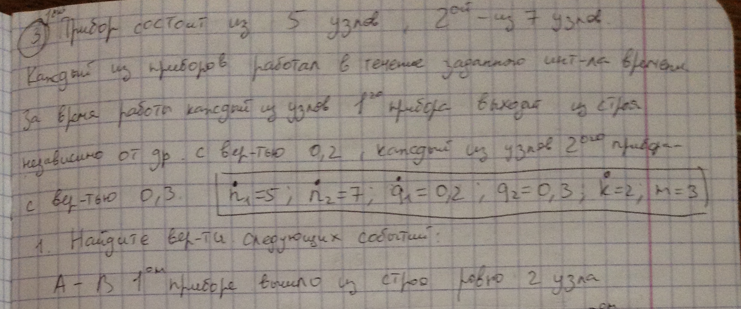 3 1ый Прибор состоит из 5 узлов, 2ой - из 7 узлов.
Каждый из приборов работал в течение заданного инт-ла времени.
За время работы каждый из узлов 1го прибора выходит из строя
независимо от др. с вер-тью 0,2, каждый из узлов 2ого прибора -
с вер-тью 0,3. n1=5; n2=7; q1=0,2; q2=0,3; k=2, m=3
1. Найдите вер-ти следующих событий:
A - В 1ом приборе вышло из строя ровно 2 узла